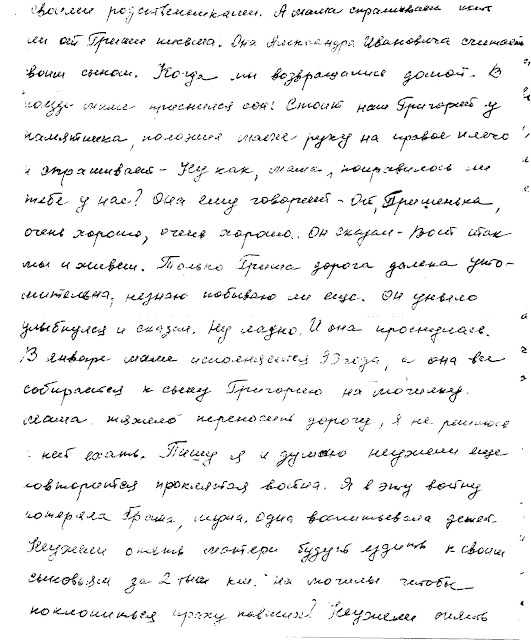 своими родственниками. А мама спрашивает нет
ли от Гриши письма. Она Александра Ивановича считает
своим сыном. Когда мы возвращались домой. В
поезде маме приснился сон: Стоит наш Григорий у
памятника, положил маме руку на правое плечо
и спрашивает - Ну как, мама, понравилось ли
тебе у нас? Она ему говорит - Ой, Гришенька,
очень хорошо, очень хорошо. Он сказал - Вот так
мы и живем. Только Гриша дорога далека уто-
мительна, незнаю побываю ли еще. Он уныло
улыбнулся и сказал. Ну ладно. И она проснулась.
В январе маме исполняется 93 года, а она все
собирается к сыну Григорию на могилку.
Мама тяжело переносит дорогу, я не решаюсь
с ней ехать. Пишу я и думаю неужели еще
повторится проклятая война. Я в эту войну
потеряла брата, мужа. одна воспитывала детей.
Неужели опять матери будут ездить к своим
сыновьям за 2 тыс км. на могилы чтобы
поклониться праху павших? Неужели опять